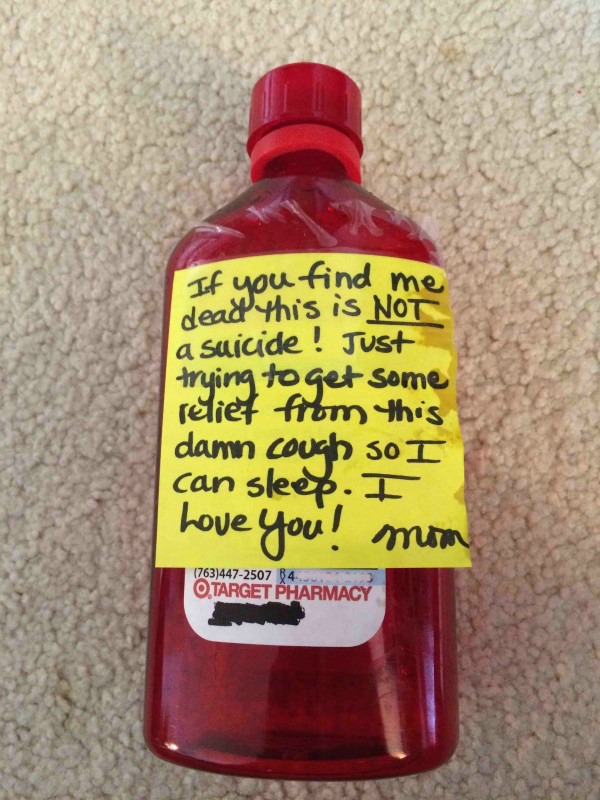 If you find me
dead this is NOT
a suicide! Just
trying to get some
relief from this
damn cough so I
can sleep. I
Love You! mom
(763)447-2507 Rx 4
TARGET PHARMACY